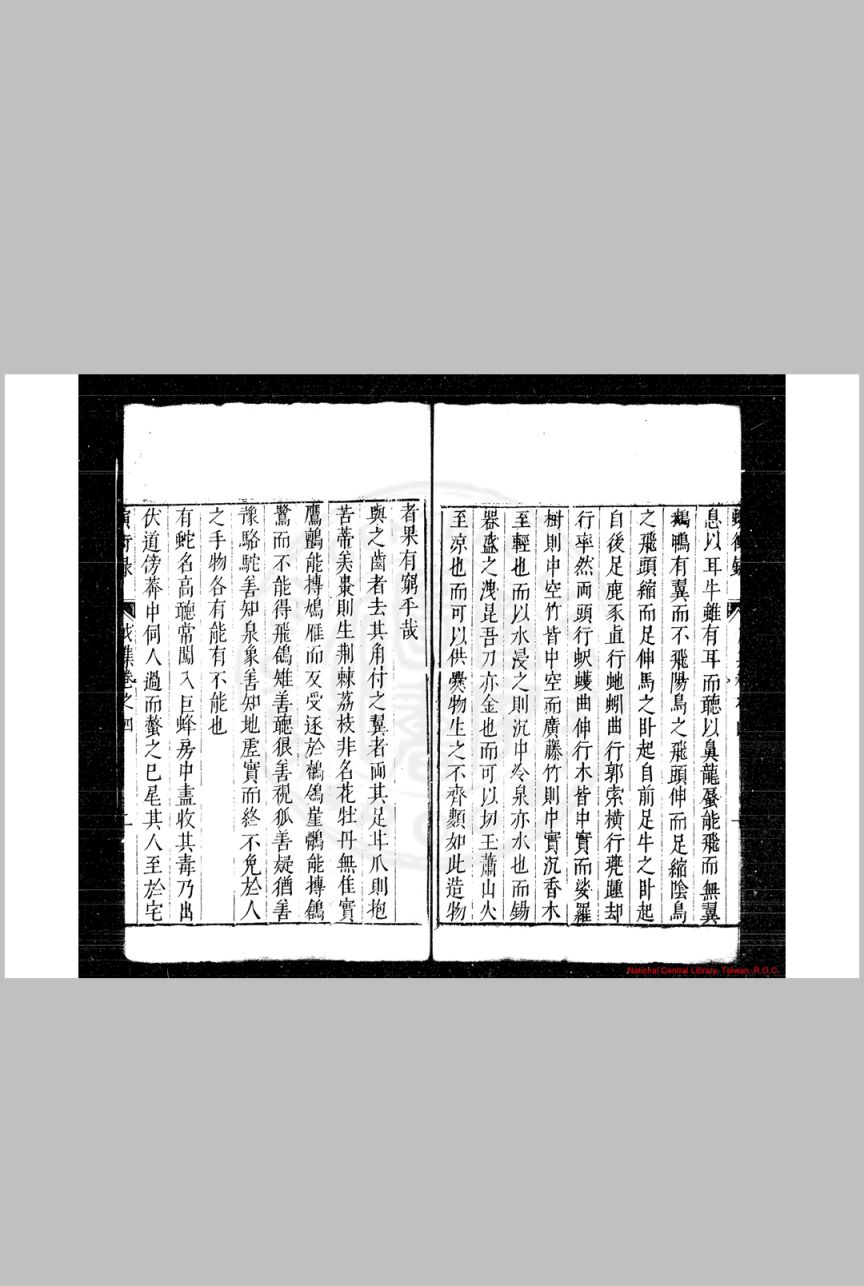 息以耳牛雖有耳而聽以鼻龍蜃能飛而無翼
鵝鴨有翼而不飛陽鳥之飛頭伸而足縮陰鳥
之飛頭縮而足伸馬之卧起自前足牛之卧起
自後足鹿豕直行虵蚓曲行郭索橫行兠踵却
行率然両頭行蚇蠖曲伸行木皆中實而娑羅
樹則中空竹皆中空而廣藤竹則中實沉香木
至輕也而以水浸之則沉中冷泉亦水也而錫
器盛之洩昆吾刀亦金也而可以切玉蕭山火
至凉也而可以供爨物生之不齊類如此造物
者果有窮乎哉
與之齒者去其角付之翼者両其足牛爪則抱
苦蒂美棗則生荆棘荔枝非名花牡丹無佳實
鷹鸇能摶鳩雁而反受逐於鶺鴒崖鶻能摶鶴
鷺而不能得飛鴿雉善聽很善視狐善疑猶善
豫駱駝善知泉象善知地虚實而終不免於人
之手物各有能有不能也
有蛇名高聽常闖入巨蜂房中盡收其毒乃出
伏道傍莽中伺人過而螫之已尾其人至於宅
卷之四
National Central Library, Taiwan, R.O.C.